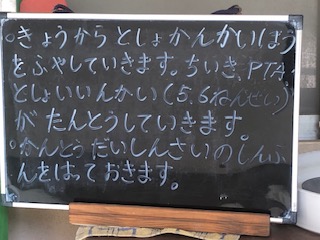 ○きょうからとしょかんかいほう
をふやしていきます。ちいき、PTA、
としょいいんかい(5.6ねんせい)
がたんとうしていきます。
○かんとうだいしんさいのしんぶ
んをはっておきます。